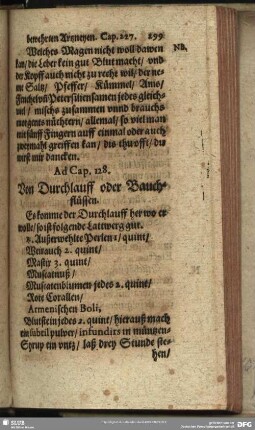 bewehrten Artzneyen. Cap. 127. 199
Welches Magen nicht woll dawen NB.
kan / die Leber kein gut Blut macht / vnd
der Kopff auch nicht zu recht wil / der ne-
me Saltz / Pfeffer / Kümmel / Anis /
Fenchel vñ Petersiliensamen jedes gleich
viel / mischs zusammen vnnd brauchs
morgens nüchtern / allemal so viel man
mit fünff Fingern auff einmal oder auch
zweymahl greiffen kan / dis thu offt / du
wirst mir dancken.
Ad Cap. 128.
Von Durchlauff oder Bauch-
flüssen.
Es komme der Durchlauff her wo er
wolle / so ist folgende Lattwerg gut.
Außerwehlte Perlen 1 / quint /
Weirauch 2. quint /
Mastix 3. quint /
Muscatnuß /
Muscatenblumen jedes 2. quint /
Rote Corallen /
Armenischen Boli,
Blutstein jedes 1. quint / hierauß mach
ein subtil pulver / infundirs in müntzen-
Syrup ein vntz / laß drey Stunde ste-
hen /
SLUB
DFG